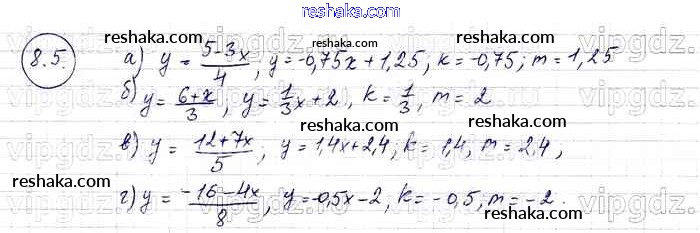 reshaka.com
8.5. а) y = (5-3x)/4, y = -0,75x + 1,25, k = -0,75; m = 1,25
reshaka.com reshaka.com
б) y = (6+x)/3, y = 1/3 x + 2, k = 1/3, m = 2
reshaka.com
в) y = (12+7x)/5; y = 1,4x + 2,4; k = 1,4, m = 2,4,
reshaka.com reshaka.com
г) y = (-16-4x)/8, y = -0,5x - 2, k = -0,5; m = -2.
reshaka.com
vipgdz.com vipgdz.com